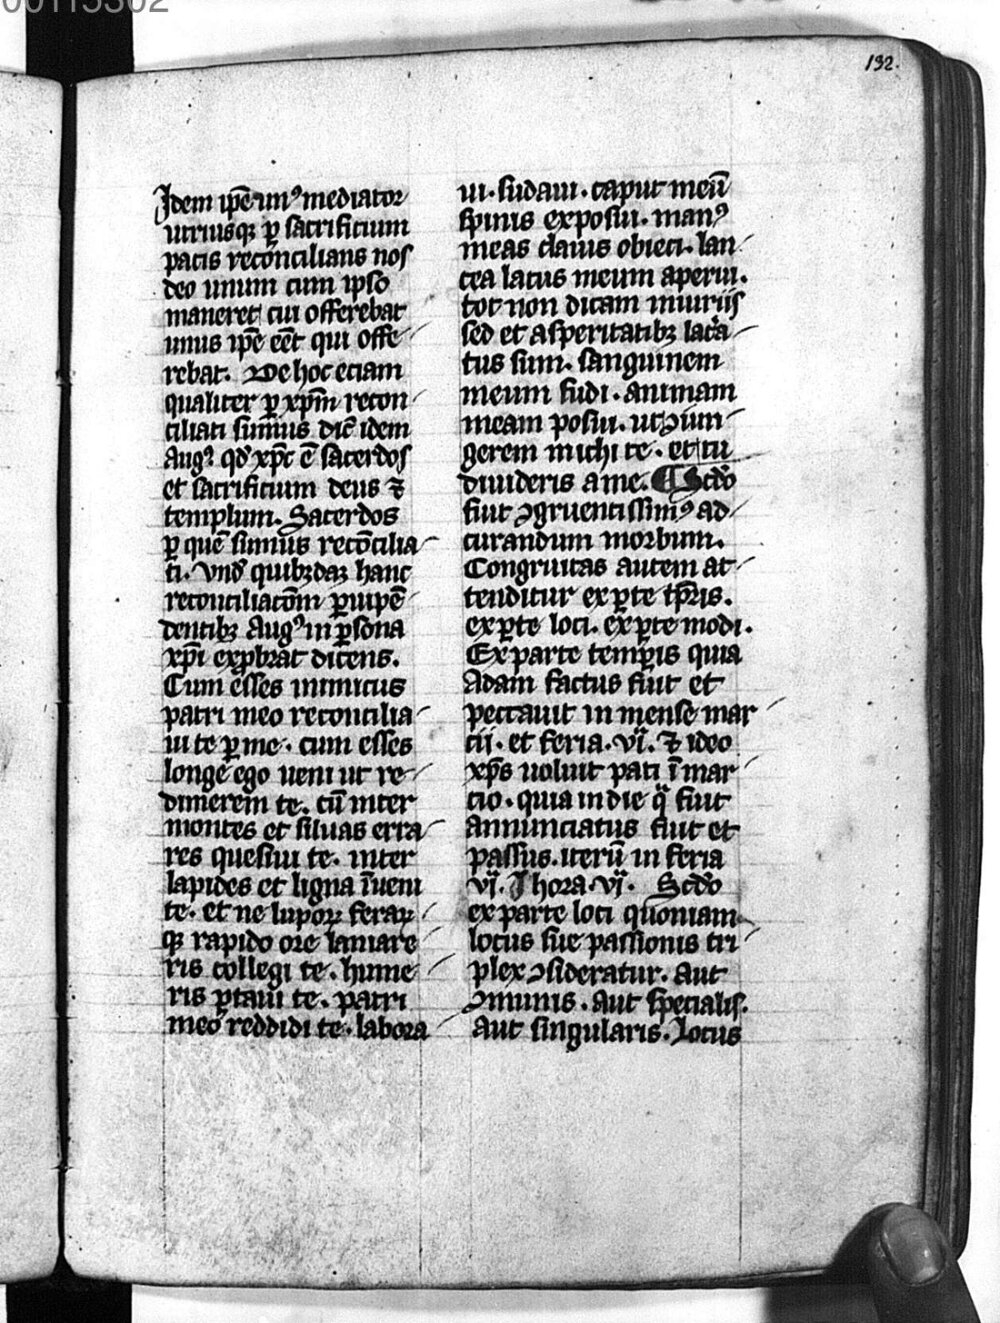 00115302
132.
Idem ip̄e un⁹ mediator
utriusqꝫ ꝑ sacrificium
pacis reco̅ncilians nos
deo unum cum ipso
maneret cui offerebat
unus ip̄e eēt qui offe
rebat. De hoc eciam
qualiter ꝑ xp̄m recon
ciliati sumus dic̄ idem
Augꝰ qd̓ xp̄c ē sacerdos
et sacrificium deus ⁊
templum. Sacerdos
ꝑ quē sumus recōcilia
ti. Vnd̓ quibꝫdaꝫ hanc
reconciliacōm ꝑuipē
dentibꝫ Augꝰ in ꝑsona
xp̄i exp̲brat dicens.
Cum esses inimicus
patri meo reconcilia
ui te ꝑ me. cum esses
longe ego ueni ut re
dimerem te. cū inter
montes et siluas erra
res quesiui te. inter
lapides et ligna īueni
te. et ne lupoꝝ feraꝝ
qꝫ rapido ore laniare
ris collegi te. hume
ris ꝑtaui te. patri
meo reddidi te. labora
ui. sudaui. caput meū
spinis exposui. manꝰ
meas clauis obieci. lan
cea latus meum aperui.
tot non dicam iniuriis
sed et asperitatibꝫ laca
tus sum. sanguinem
meum fudi. animam
meam posui. ut ꝯiun
gerem michi te. et tu
diuideris a me. ¶ Scd̓o
fuit ꝯgruentissimꝰ ad
curandum morbum.
Congruitas autem at
tenditur ex ꝑte tp̄ris.
ex ꝑte loci. ex ꝑte modi.
Ex parte temp̲is quia
Adam factus fuit et
peccauit in mense mar
cii. et feria. vi. ⁊ ideo
xp̄s uoluit pati ī mar
cio. quia in die qͣ fuit
annunciatus fuit et
passus. iterū in feria
vi. I hora. vi. Scd̓o
ex parte loci quoniam
locus sue passionis tri
plex ꝯsideratur. Aut
ꝯmunis. aut specialis.
aut singularis. Locus